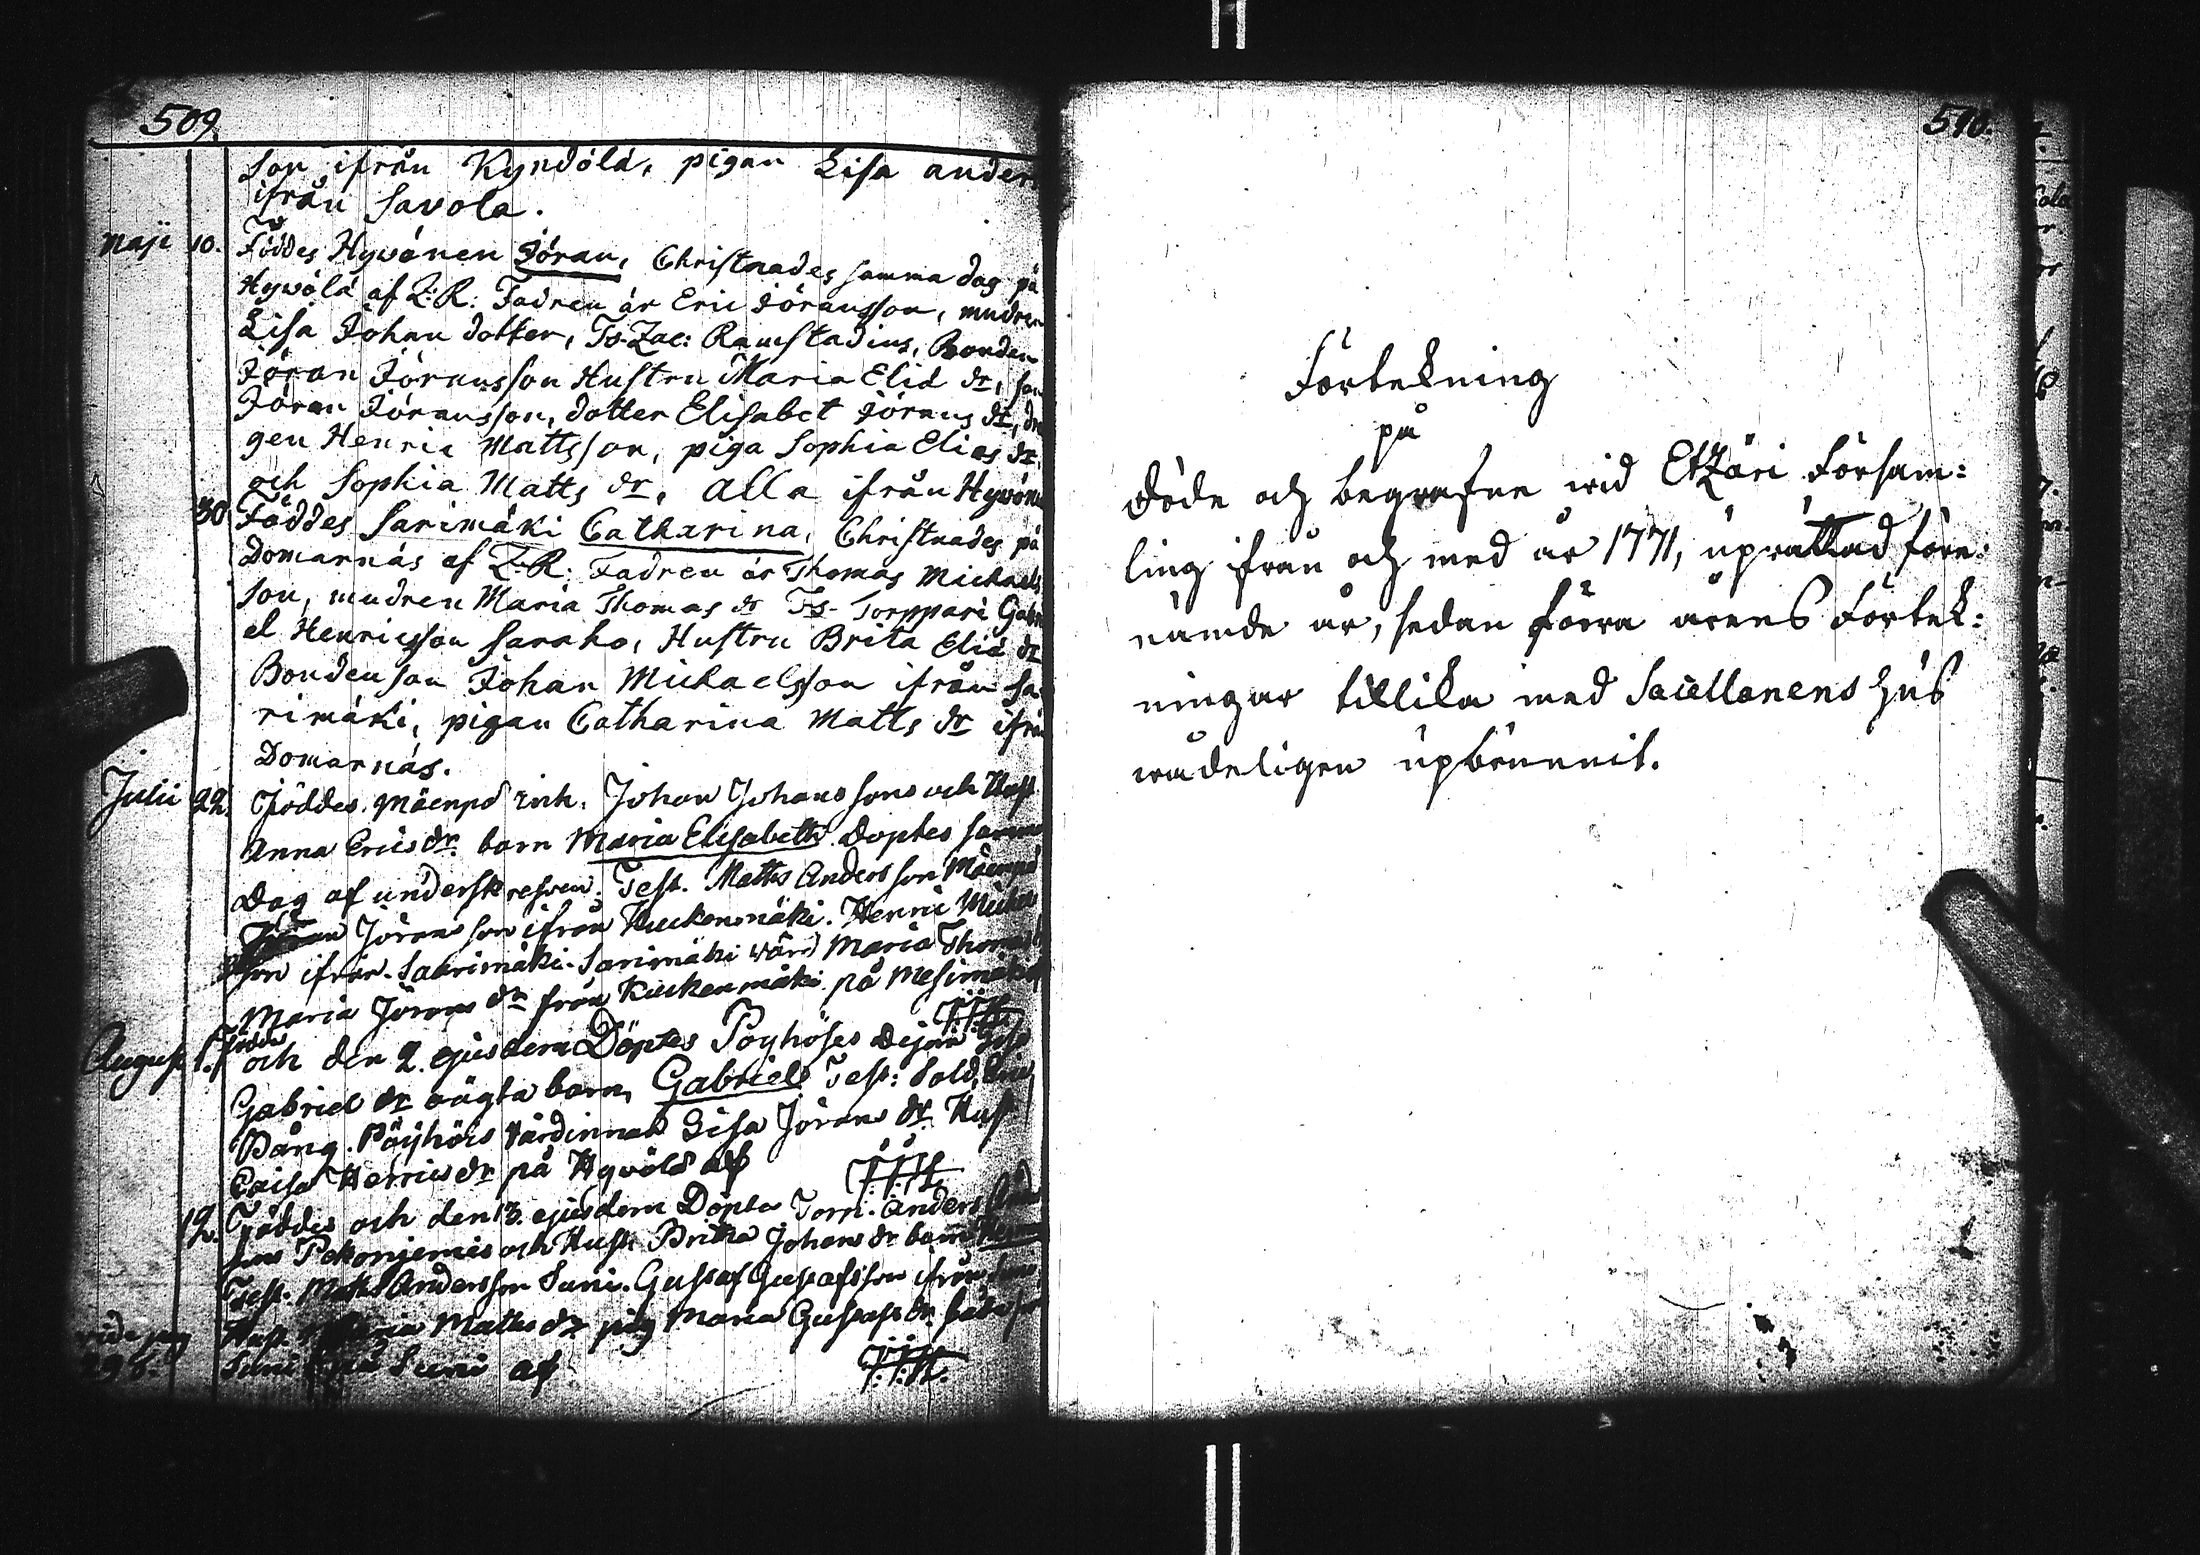 509.
son ifrån Kyndölä, pigan Lisa anders
ifrån Savola.
Maji 10. Föddes Hyvönen Jöran, Christnades samma dag på
Hyvölä af Z: R: Fadren är Eric Jöransson, mudren
Lisa Johan dotter, Ts. Zac: Ramstadius, Bonden
Jöran Jöransson Hustru Maria Elid dr, son
Jöran Jöransson, dotter Elisabet Jörans dr, drä
gen Henric Mattsson, piga Sophia Elias dr
och Sophia Matts dr, alla ifrån Hyvön
30 Föddes Sarimäki Catharina, Christnades på
Domarnäs af Z: R: Fadren är Thomas Michaels
son, mudren Maria Thomas dr Ts- Torppari Gabri
el Henricsson Saraho, Hustru Brita Elid dr
Bondenson Johan Michaelsson ifrån Sa
rimäki, pigan Catharina Matts dr ifrån
Domarnäs.
Julii 22. Föddes Mäenpä Inh. Johan Johanssons och Hust
Anna Erics dr. barn Maria Elisabeth Döptes samma
Dag af underskrefven. Test. Matts Andersson Mäenpä
Jöransson ifrån Kuckonmäki. Henric Michels
son ifrån Saarimäki. Sarimäki värd Maria Thomas
Maria Jörans dr från Kuckenmäki på Mesimäki
J.J.H.
August 1. Födes
och den 2. ejusdem Döptes Pöyhöses Dejan Lisa
Gabriel dr oägta barn, Gabriel Test: Sold. Eric
Bång. Pöyhöis Värdinnan Lisa Jörans dr. Hust
Caisa Henrics dr på Hyvölä af J.J.H.
12. Föddes och den 13. ejusdem Döptes Torp. Anders
sons Pakonjemis och Hust. Brita Johans dr barn
Test. Matts Andersson Suni. Gustaf Gustafsson ifrån Suni
Hust. Maria Matts dr pig Maria Gustafs dr. båda från
Suni på Suni af J.J.H.
vide pag
298.
510.
Förtekning
på
döde och begrafne wid Etzäri Försam:
ling ifrån och med år 1771, uprättad före:
nämde år, sedan förra årens Förtek:
ningar tillika med Sacellanens hus
wådeligen upbrunnit.